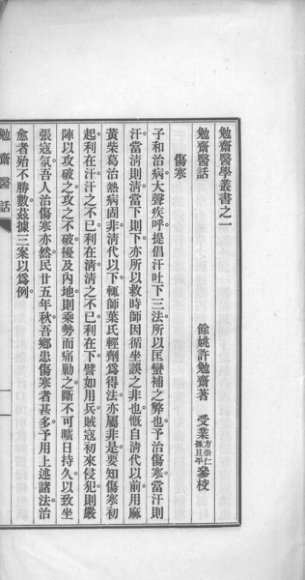 勉齋醫學叢書之一
勉齋醫話
餘姚許勉齋著　受業
參校
傷寒
子和治病大聲疾呼。提倡汗吐下三法。所以匡蠻補之弊也。予治傷寒。當汗則
汗。當清則清。當下則下。亦所以救時師因循坐誤之非也。慨自清代以前用麻
黃柴葛治熱病固非。清代以下。輒師葉氏輕劑爲得法。亦屬非是。要知傷寒初
起。利在汗。汗之不已。利在清。清之不已。利在下。譬如用兵。賊寇初來侵犯。則嚴
陣以攻破之。攻之不破。擾及內地。則乘勢而痛勦之。斷不可曠日持久。以致坐
張寇氛。吾人治傷寒亦然。民廿五年秋。吾鄉患傷寒者甚多。予用上述諸法治
愈者殆不勝數。茲據三案以爲例。
勉齋醫話